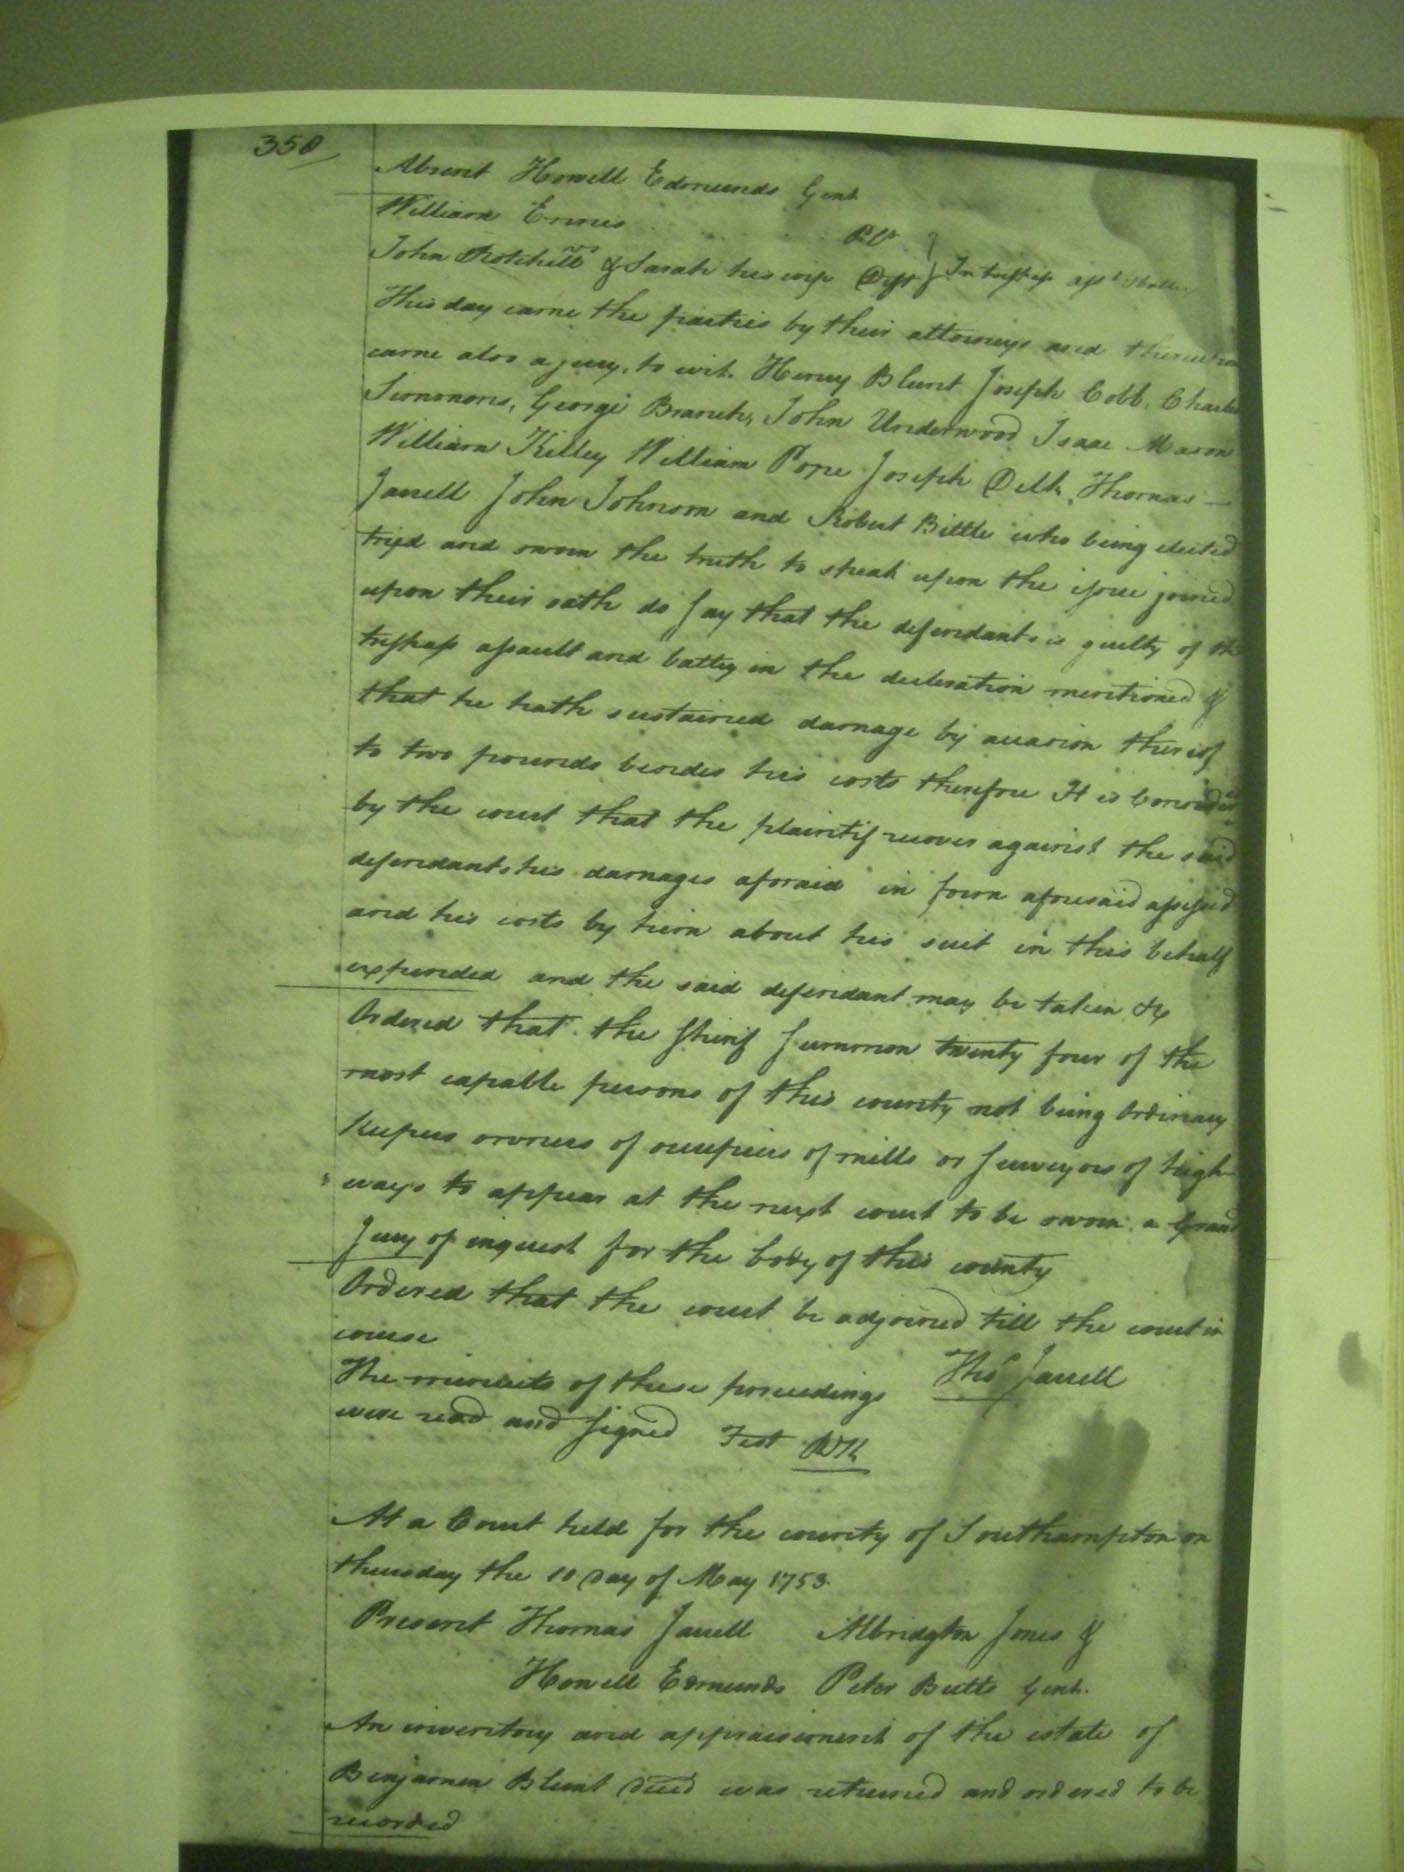 350
Absent Howell Edmunds Gent
William Ennis Plt
John & Sarah his wife Deft } In trespass asst &
This day came the parties by their attorneys and thereupon
came also a jury, to wit. Henry Blunt Joseph Cobb, Charles
Simmons, George Branch, John Underwood Isaac Mason
William Kelley William Pope Joseph Delk, Thomas
Jarrell John Johnson and Robert Bittle who being elected
tryed and sworn the truth to speak upon the issue joined
upon their oath do say that the defendants is guilty of the
trespass assault and battery in the declaration mentioned &
that he hath sustained damage by occasion thereof
to two pounds besides his costs therefore It is Considered
by the court that the plaintif recover against the said
defendants his damages aforsaid in form aforesaid assessed
and his costs by him about his suit in this behalf
expended and the said defendant may be taken &c
Ordered that the Sherif Summon twenty four of the
most capable persons of this county not being Ordinary
Keepers owners of occupiers of mills or Surveyors of high
ways to appear at the next court to be sworn a Grand
Jury of inquest for the body of this county
Ordered that the court be adjorned till the court in
course
The minuets of these proceedings Thos Jarrell
were read and Signed Test
At a Court held for the county of Southampton on
thursday the 10 Day of May 1753
Present Thomas Jarrell Albridgton Jones &
Howell Edmunds Peter Butts Gent.
An inventory and appraisement of the estate of
Benjamen Blunt deced was returned and ordered to be
recorded